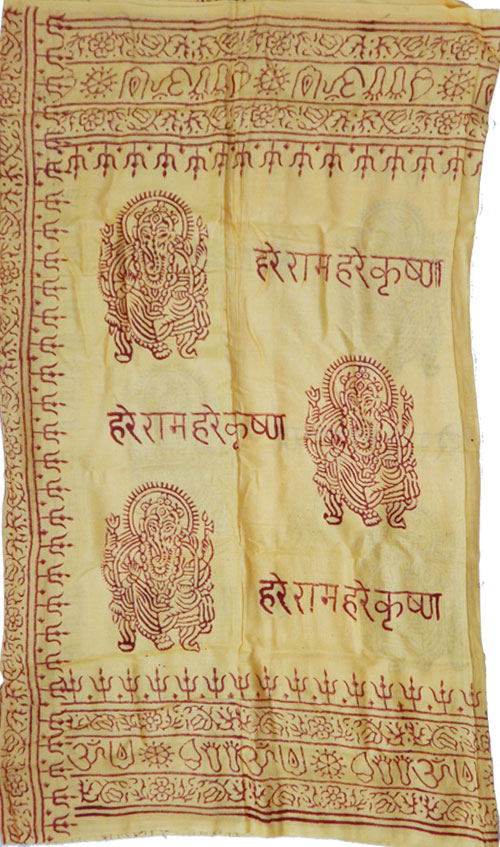 हरे राम हरे कृष्ण
हरे राम हरे कृष्ण
हरे राम हरे कृष्ण
ॐ ॐ